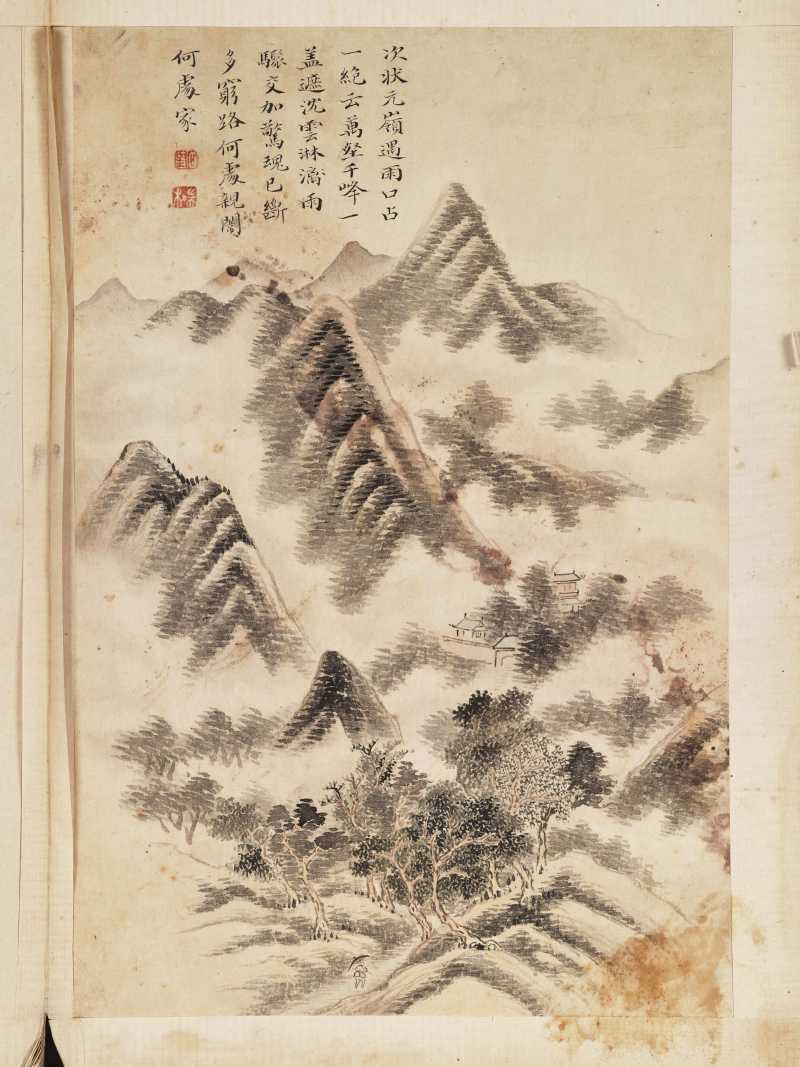 次狀元嶺遇雨口占
一絕云萬壑千峰一
蓋遮沈雲淋漓雨
驟交加驚魂已斷
多窮路何處親闈
何處家